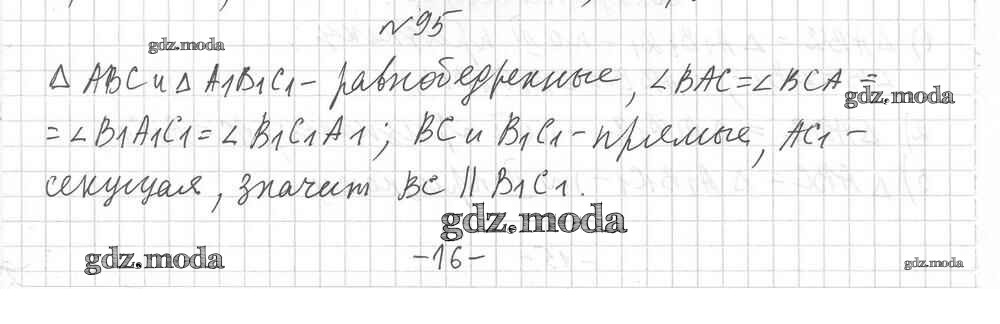 №95
gdz.moda
△ ABC и △ A1B1C1 - равнобедренные, ∠BAC = ∠BCA =
gdz.moda
= ∠B1A1C1 = ∠B1C1A1; BC и B1C1 - прямые, AC1 -
секущая, значит BC || B1C1.
gdz.moda
-16-
gdz.moda
gdz.moda